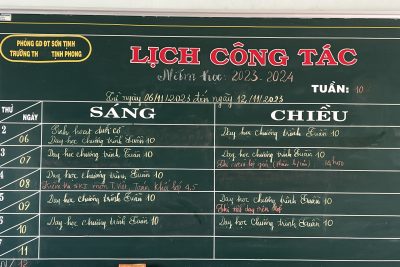 PHÒNG GD-ĐT SƠN TỊNH
TRƯỜNG TH TỊNH PHONG
LỊCH CÔNG TÁC
Năm học: 2023-2024
TUẦN: 10
Từ ngày 06/11/2023 đến ngày 12/11/2023
THỨ NGÀY SÁNG CHIỀU
2 06 Sinh hoạt dưới cờ
Dạy học chương trình Tuần 10 Dạy học chương trình Tuần 10
3 07 Dạy học chương trình Tuần 10 Dạy học chương trình Tuần 10
4 08 Dạy học chương trình Tuần 10
Kiểm tra GKI môn T.Việt, Toán Khối lớp 4,5
5 09 Dạy học chương trình Tuần 10 Dạy học chương trình Tuần 10
6 10 Dạy học chương trình Tuần 10 Dạy học chương trình Tuần 10
7 11
12